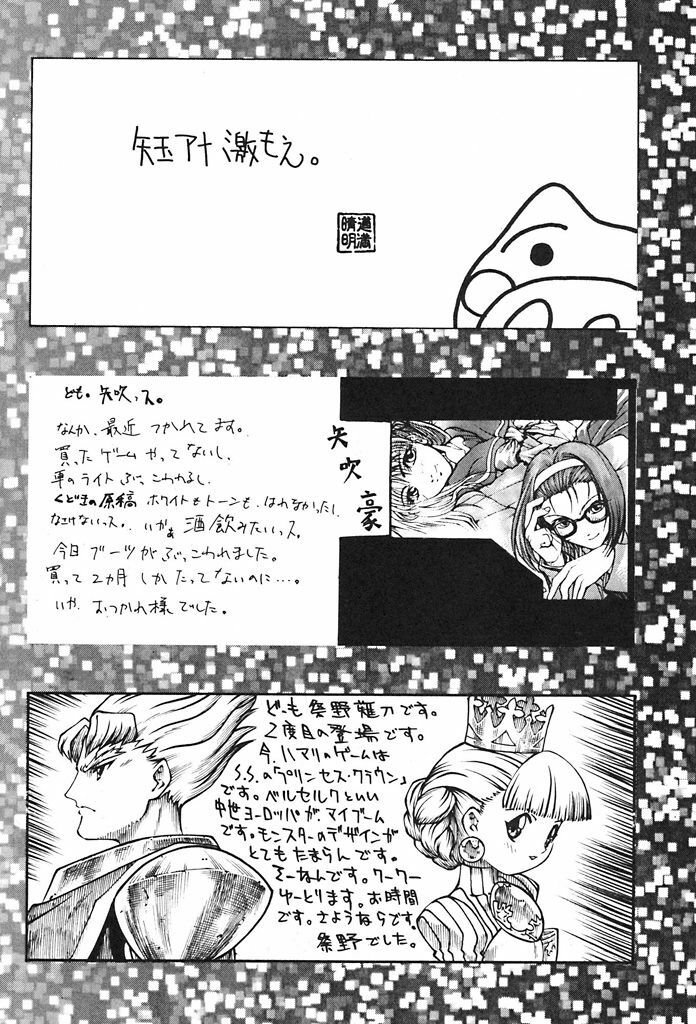 短玉アナ激もえ。
道満
晴明
ども。矢吹っス。
なんか、最近つかれてます。
買ったゲームやってないし、
車のライトぶっこわれるし、
くどまの原稿ホワイトもトーンも、はれなかったし、
なさけないっス。いやぁ酒飲みたいっス。
今日ブーツがぶっこわれました。
買って2ヵ月しかたってないのに…。
いや、おつかれ様でした。
矢吹豪
ども祭野薙刀です。
2度目の登場です。
今、ハマリのゲームは
S.S.の「プリンセス・クラウン」
です。ベルセルクといい
中世ヨーロッパがマイブーム
です。モンスターのデザインが
とてもたまらんです。
そーなんです。クークー
ゆーとります。お時間
です。さようならです。
祭野でした。